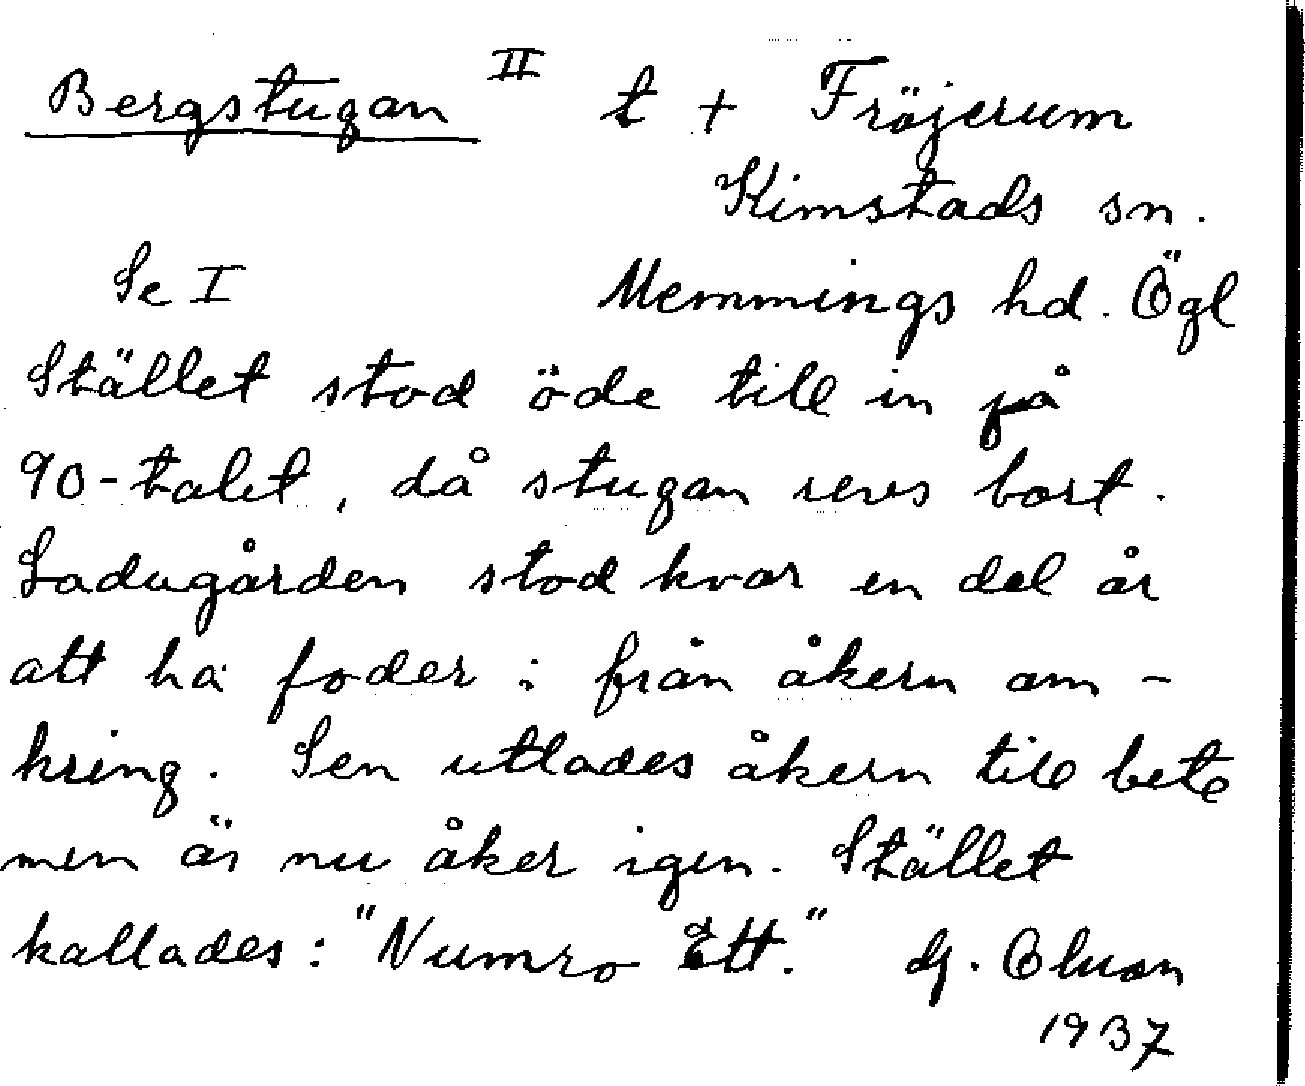 Bergstugan II t + Fröjerum
Kimstads sn.
Se I Memmings hd. Ögl
Stället stod öde till in på
90-talet, då stugan revs bort.
Ladugården stod kvar en del år
att ha foder i från åkern om-
kring. Sen utlades åkern till bete
men är nu åker igen. Stället
kallades: "Numro Ett."
1937